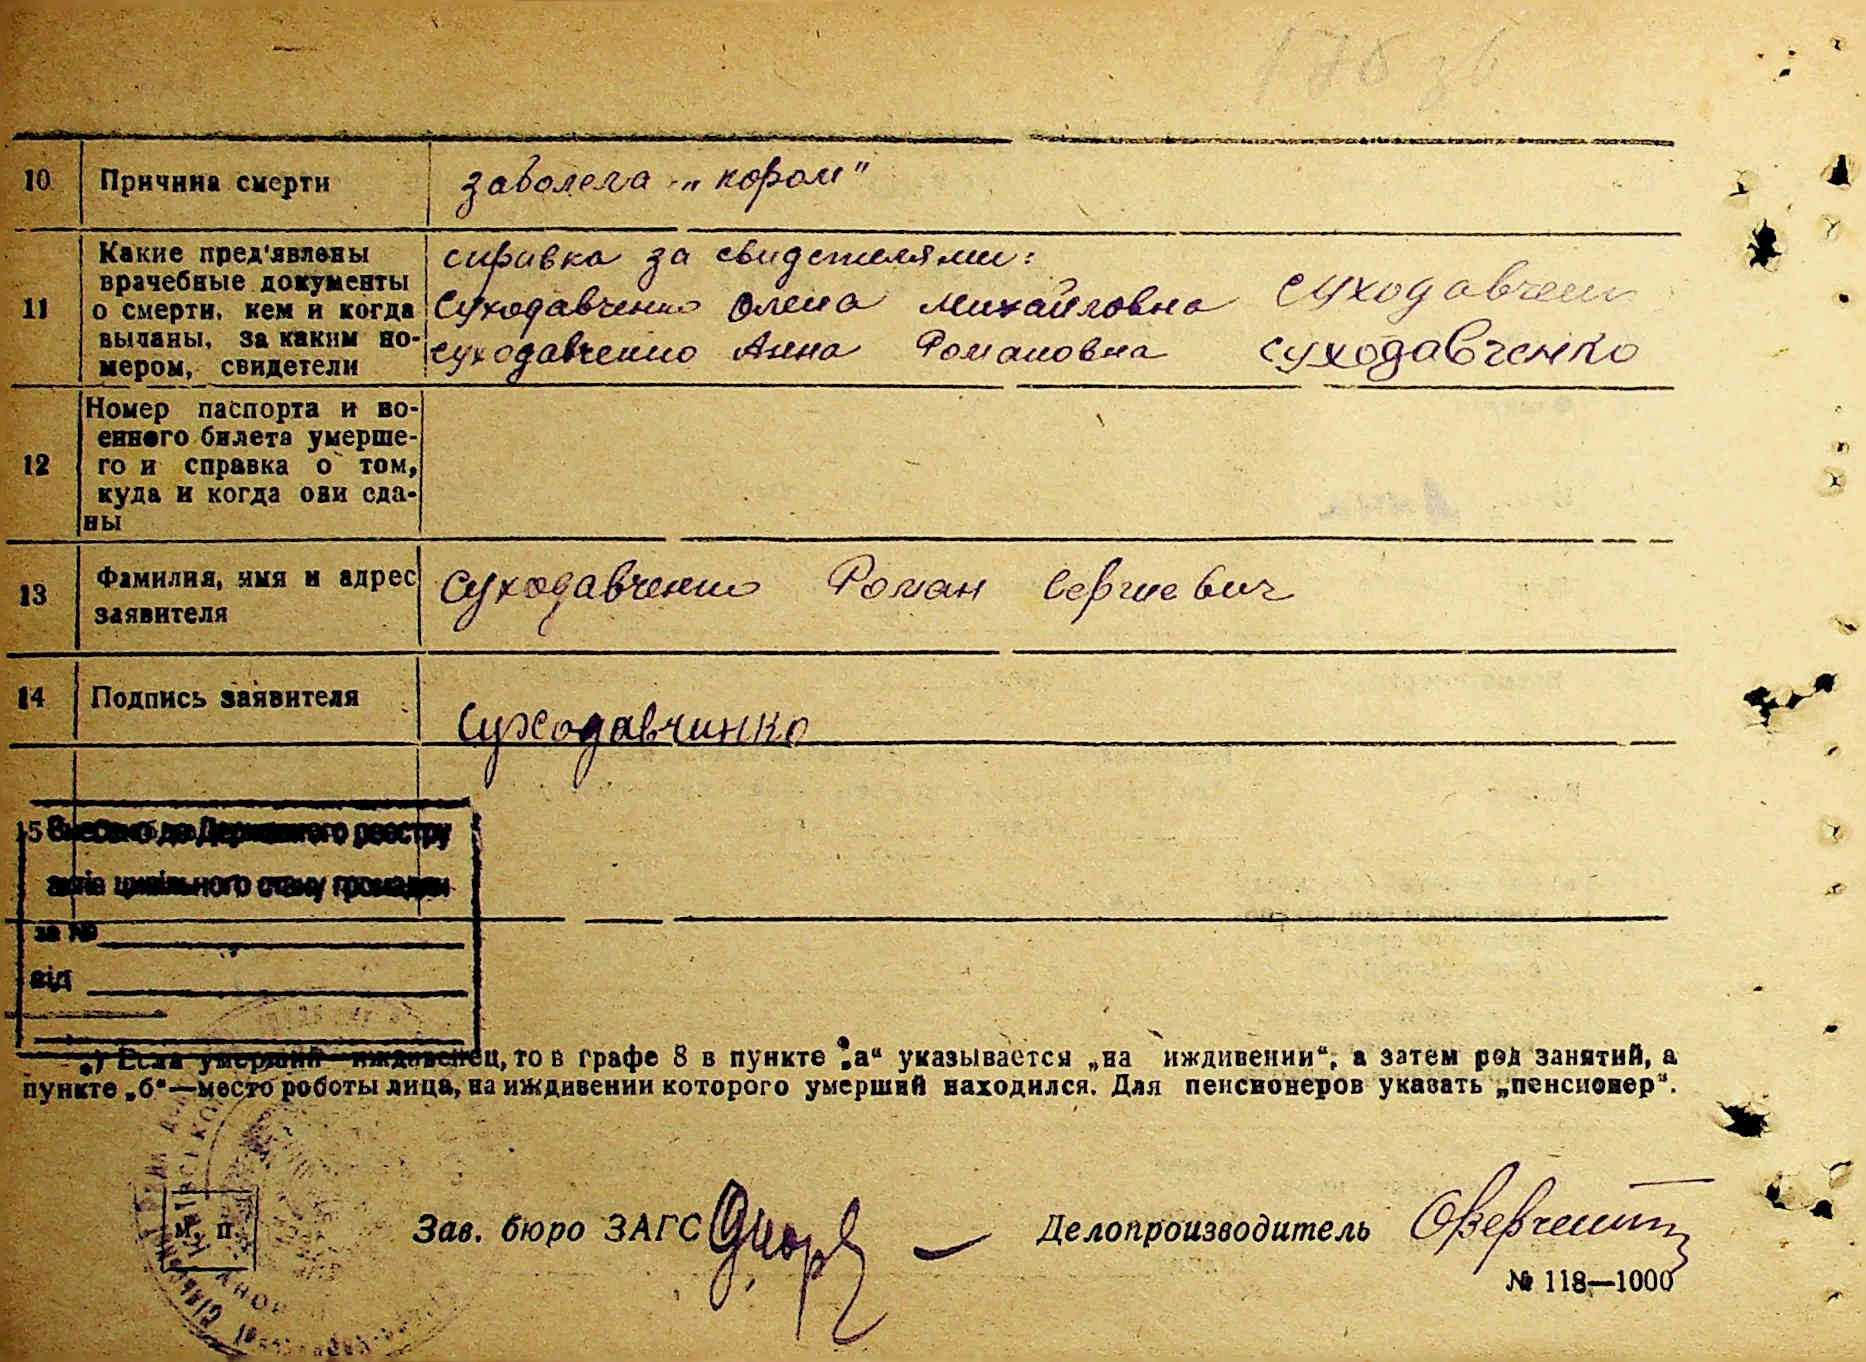 176 зв
10 Причина смерти заболела „кором"
11 Какие пред'явлены врачебные документы о смерти, кем и когда выданы, за каким номером, свидетели
справка за свидетелями:
Суходавченко Олена Михайловна Суходавченко
Суходавченко Анна Романовна Суходавченко
12 Номер паспорта и во-
енного билета умерше-
го и справка о том,
куда и когда они сда-
ны
13 Фамилия, имя и адрес
заявителя
Суходавченко Роман Сергиевич
14 Подпись заявителя Суходавчинко
15
Внесено до Державного реєстру
актів цивільного стану громадян
за №
від
*) Если умерший иждивенец, то в графе 8 в пункте „а“ указывается „на иждивении“, а затем род занятий, а
пункте „б“—место роботы лица, на иждивении которого умерший находился. Для пенсионеров указать „пенсионер“.
М. П.
Зав. бюро ЗАГС Делопроизводитель
№ 118—1000